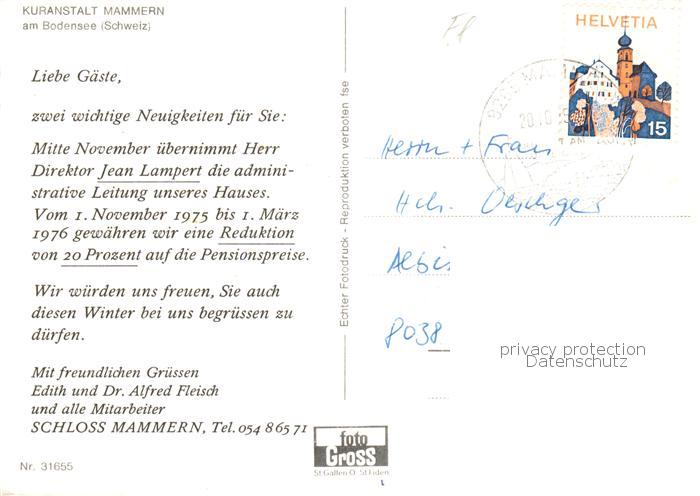 KURANSTALT MAMMERN
am Bodensee (Schweiz)
Liebe Gäste,
zwei wichtige Neuigkeiten für Sie:
Mitte November übernimmt Herr
Direktor Jean Lampert die admini-
strative Leitung unseres Hauses.
Vom 1. November 1975 bis 1. März
1976 gewähren wir eine Reduktion
von 20 Prozent auf die Pensionspreise.
Wir würden uns freuen, Sie auch
diesen Winter bei uns begrüssen zu
dürfen.
Mit freundlichen Grüssen
Edith und Dr. Alfred Fleisch
und alle Mitarbeiter
SCHLOSS MAMMERN, Tel. 054 8 65 71
Nr. 31655
Echter Fotodruck - Reproduktion verboten fse
foto
Gross
St. Gallen O. St. Fiden
HELVETIA
15
Herrn + Frau
Hch. Oeschger
Albis
8038
privacy protection
Datenschutz